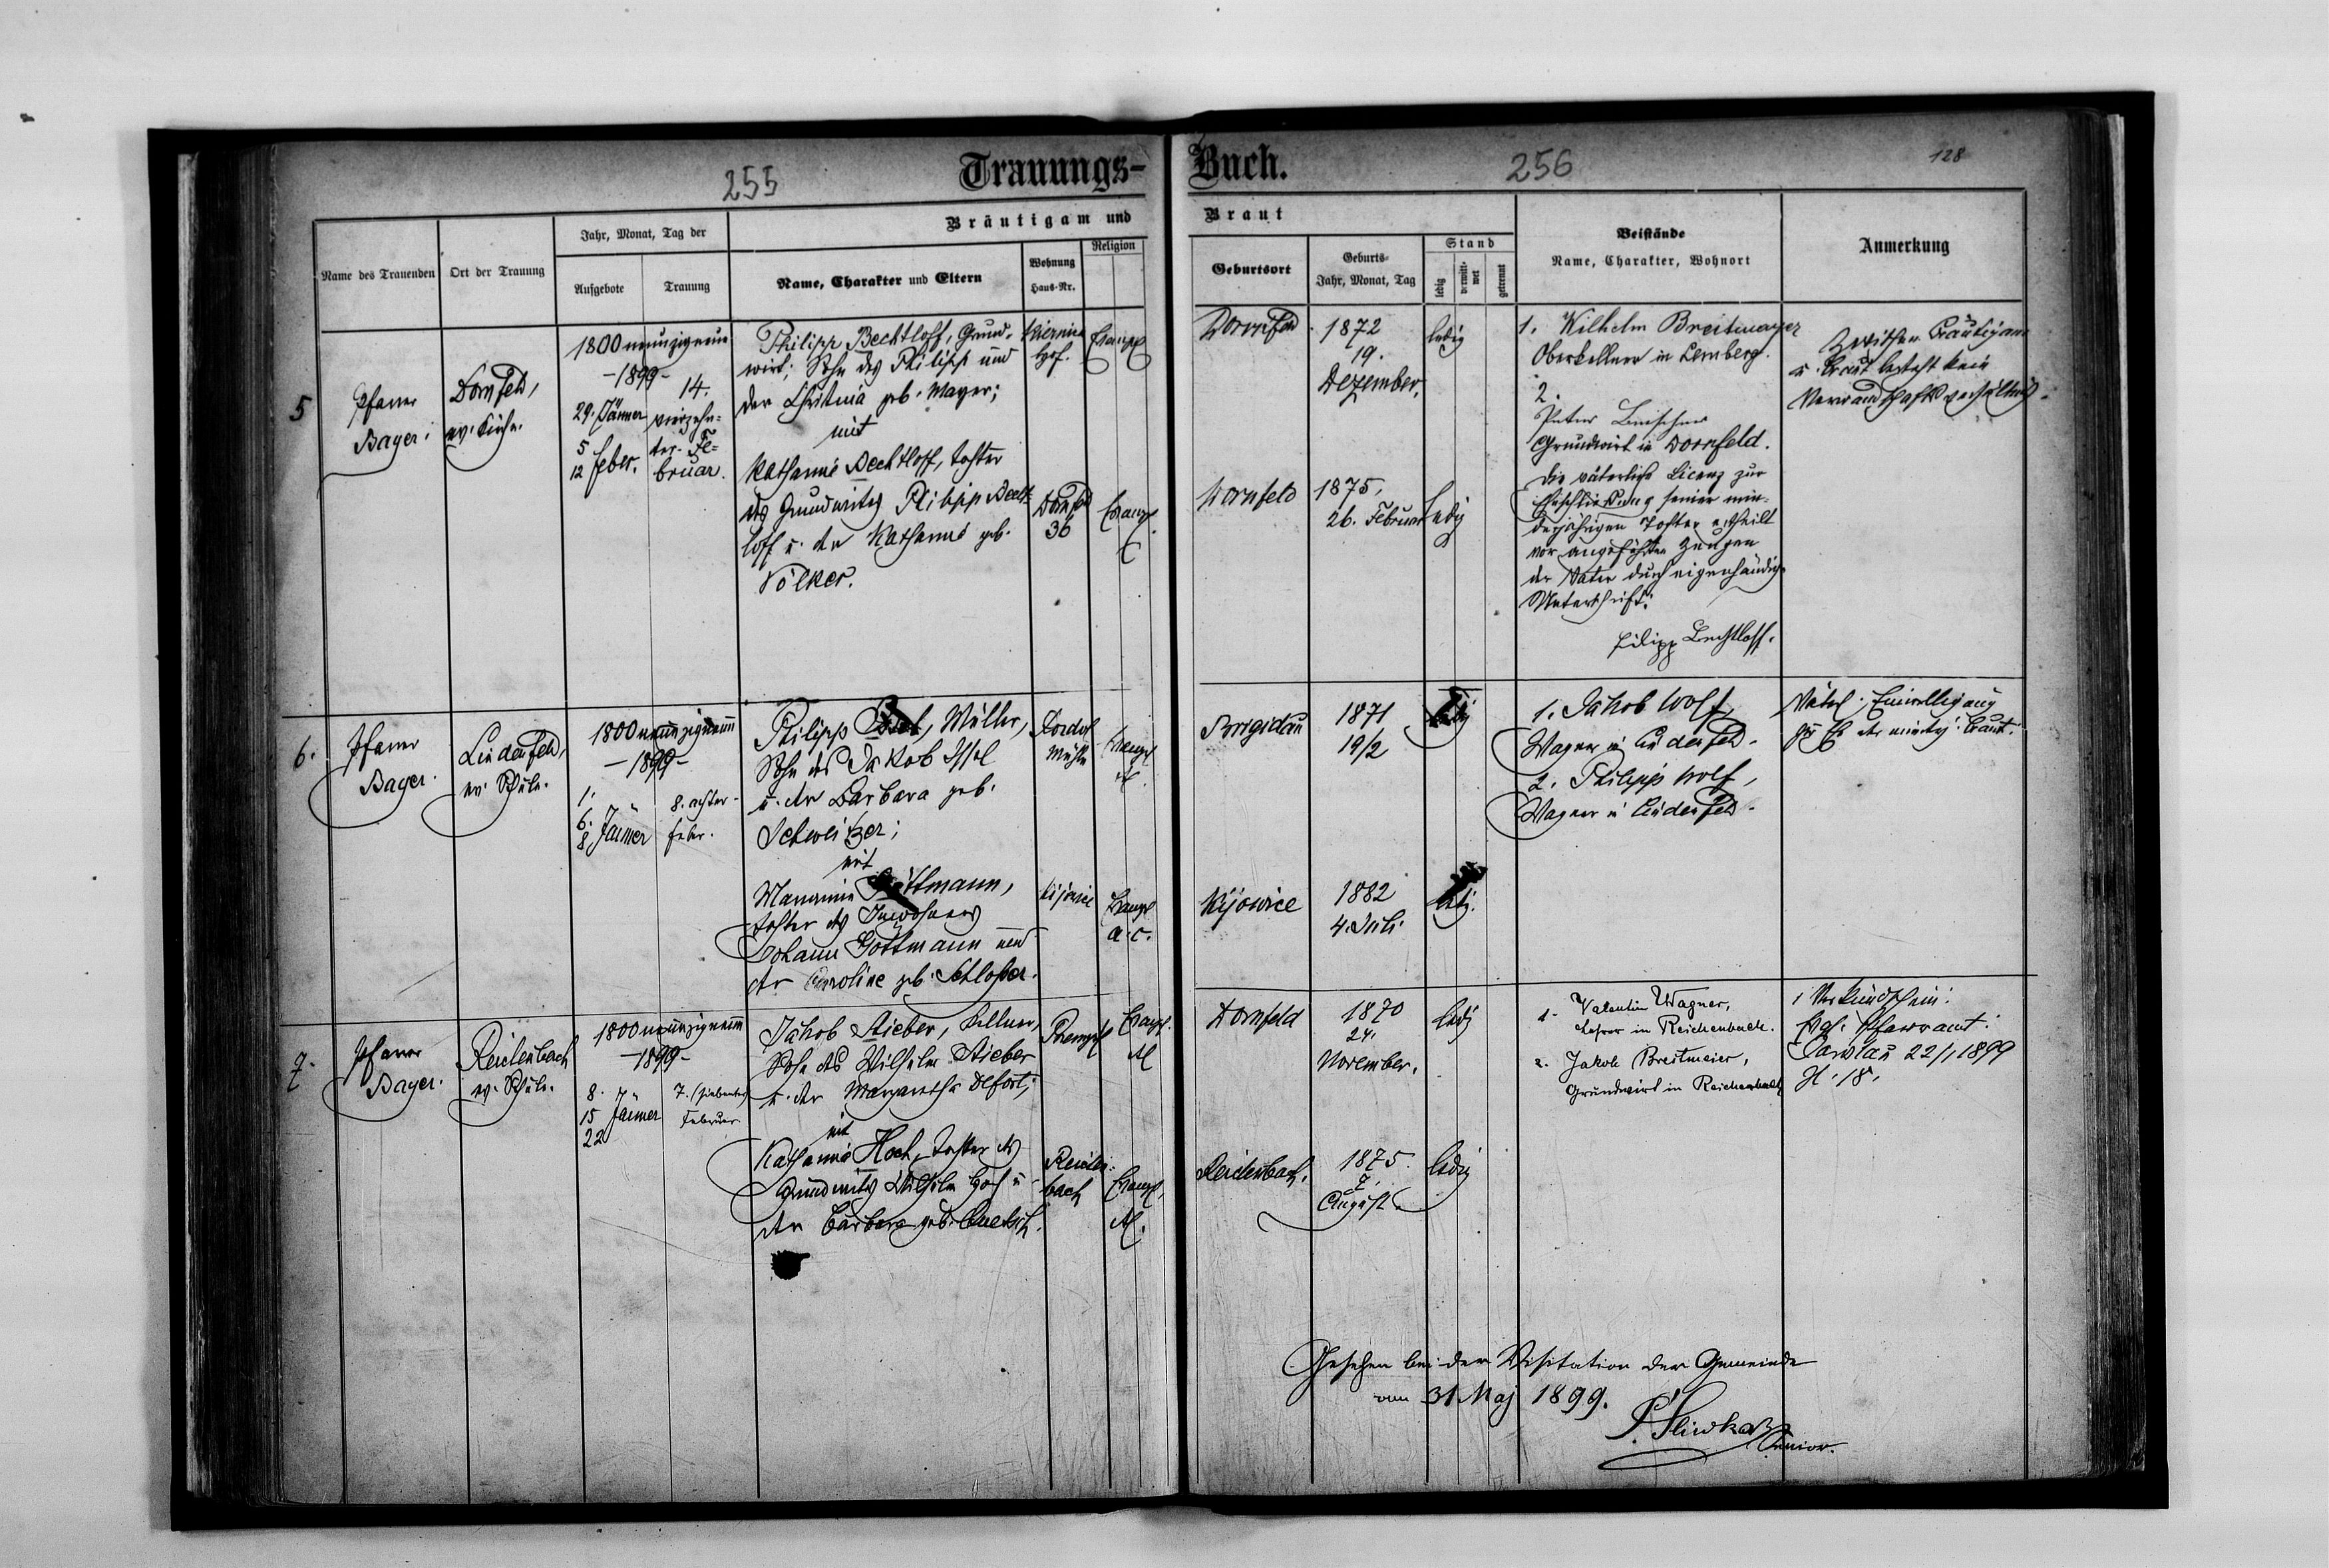 255
Trauungs-
Buch.
256
128
Bräutigam und
Braut
Name des Trauenden
Ort der Trauung
Jahr, Monat, Tag der
Aufgebote
Trauung
Name, Charakter und Eltern
Wohnung
Haus-Nr.
Religion
Geburtsort
Geburts-
Jahr, Monat, Tag
Stand
ledig
verwitt-
wet
getrennt
Beistände
Name, Charakter, Wohnort
Anmerkung
5
Pfarrer
Bayer.
Dornfeld,
ev. Kirche.
1800 neunzigneun
-1899-
29. Jänner
5
12 Feber.
14.
vierzehn-
ter Fe-
bruar.
Philipp Bechtloff, Grund-
wirt; Sohn des Philipp und
der Christina geb. Mayer;
mit
Katharina Bechtloff, Tochter
des Grundwirtes Philipp Becht-
loff u. der Katharina geb.
Völker.
Hof.
Evangel
Dornfeld
36
Evangel.
Dornfeld
1872
19.
Dezember.
ledig
Dornfeld
1875,
26. Februar
ledig
1. Wilhelm Breitmayer
Oberkellner in Lemberg.
2.
Peter
Grundwirt in Dornfeld.
Die väterliche Licenz zur
Eheschließung seiner min-
derjährigen Tochter ertheilt
vor angeführten Zeugen
der Vater durch eigenhändige
Unterschrift:
Filipp Bechtloff.
Zwischen Bräutigam
u. Braut besteht kein
Verwandschaftsverhältnis.
6.
Pfarrer
Bayer.
Lindenfeld,
ev. Schule.
1800 neunzigneun
-1899-
1.
6. Jänner
8.
8. achter
Feber.
Philipp Issel, Müller,
Sohn des Jakob Issel
u. der Barbara geb.
Schweitzer;
mit
Marianne Gottmann,
Tochter des Inwohners
Johann Gottmann und
der Caroline geb. Schloßer.
Mühle
Evangel
Kijowice
Evangel
a. c.
Brigidau
1871
19/2
ledig
Kijowice
1882
4. Juli
ledig.
1. Jakob Wolf,
Wagner in Lindenfeld.
2. Philipp Wolf,
Wagner in Lindenfeld.
Väterl. Einwilligung
zur Ehe der mindrj. Braut.
7.
Pfarrer
Bayer.
Reichenbach
ev. Schule.
1800 neunzigneun
-1899-
8.
15 Jänner
22
7. (siebenter)
Februar
Jakob Stieber, Kellner,
Sohn des Wilhelm Stieber
u. der Margaretha Defort;
mit
Katharina Hoch, Tochter des
Grundwirtes Wilhelm Hoch u.
der Barbara geb. Quetsch.
Przemysl
Evangel.
Reichen-
bach
Evangel.
Dornfeld
1870
24.
November.
ledig
Reichenbach.
1875.
7.
August.
ledig
1. Valentin Wagner,
Lehrer in Reichenbach.
2. Jakob Breitmeier,
Grundwirt in Reichenbach
1 Verkündschein:
Evgl. Pfarramt
Jaroslau 22/1 1899
Z. 18.
Gesehen bei der Visitation der Gemeinde
am 31 Maj 1899.
Senior.